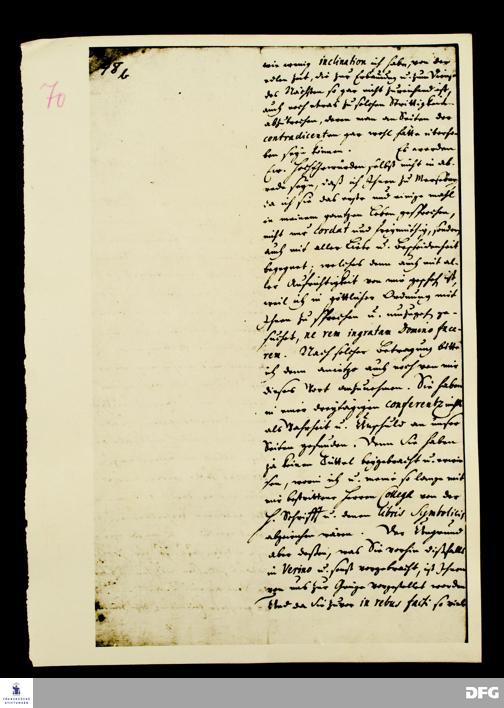 48b
70
wie wenig inclination ich habe, von der
edlen Zeit, die zur Erbauung u. zum Dienst
des Nächsten so gar nicht zureichend ist,
auch noch etwas zu solchen Strittigkeiten
abzubrechen, deren man an Seiten der
contradicenten gar wohl hätte überho-
ben seyn können. Es werden
Ew. Hochehrwürden selbst nicht in ab-
rede seyn, daß ich Ihnen zu Merseburg,
da ich sie das erste und einige mahl
in meinem gantzen Leben gesprochen,
nicht nur cordat und freymüthig, sondern
auch mit aller Liebe u. Bescheidenheit
begegnet, welches denn auch mit al-
ler Aufrichtigkeit von mir geschehen ist,
weil ich in göttlicher Ordnung mit
Ihnen zu sprechen u. umzugehen ge-
suchet, ne rem ingratam Domino face-
rem. Nach solcher Betragung bitte
ich denn anietzo auch noch von mir
dieses Wort anzunehmen. Sie haben
in einer dreytägigen conferentz nichts
als Wahrheit u. Unschuld an unser
Seiten gefunden. Denn Sie haben
ja keinen Tüttel beygebracht u. erwie-
sen, worin ich u. meine so lange mit
mir bestrittene Herren Collegæ von der
H. Schrifft u. denen libris Symbolicis
abgewichen wären. Der Ungrund
aber dessen, was Sie vorhin dißfalls
in Verino u. sonst vorgebracht, ist Ihnen
von uns zur Gnüge vorgestellet worden
Und da Sie zuvor in rebus facti so viel
FRANCKESCHE STIFTUNGEN
DFG